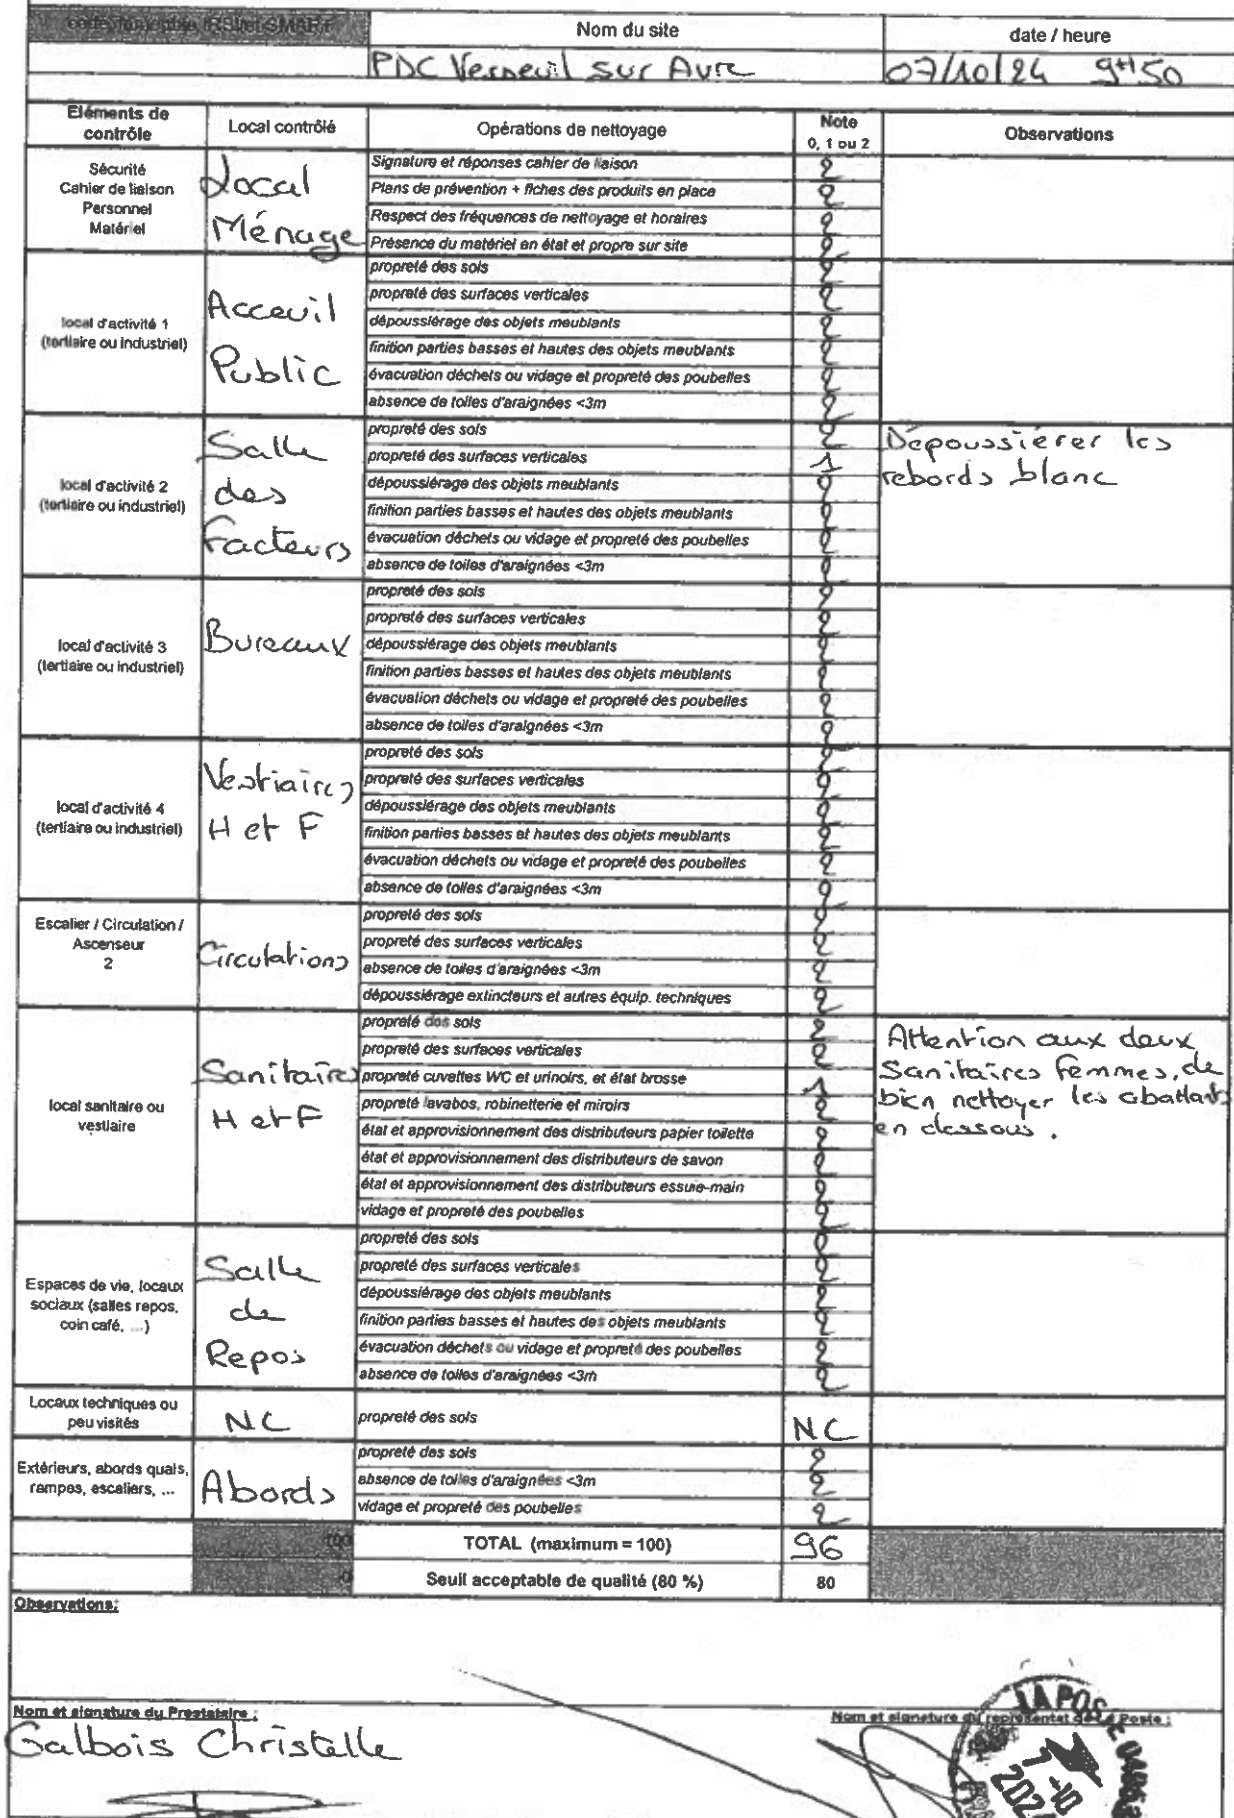 Nom du site
date / heure
PDC Verneuil sur Avre
07/10/24 9H50
Eléments de contrôle
Local contrôlé
Opérations de nettoyage
Note 0, 1 ou 2
Observations
Sécurité
Cahier de liaison
Personnel
Matériel
Local
Ménage
Signature et réponses cahier de liaison 2
Plans de prévention + fiches des produits en place 2
Respect des fréquences de nettoyage et horaires 2
Présence du matériel en état et propre sur site 2
local d'activité 1
(tertiaire ou industriel)
Acceuil
Public
propreté des sols 2
propreté des surfaces verticales 2
dépoussiérage des objets meublants 2
finition parties basses et hautes des objets meublants 2
évacuation déchets ou vidage et propreté des poubelles 2
absence de toiles d'araignées <3m 2
local d'activité 2
(tertiaire ou industriel)
Salle
des
Facteurs
propreté des sols 2
propreté des surfaces verticales 1
dépoussiérage des objets meublants 2
finition parties basses et hautes des objets meublants 2
évacuation déchets ou vidage et propreté des poubelles 2
absence de toiles d'araignées <3m 2
Dépoussiérer les
rebords blanc
local d'activité 3
(tertiaire ou industriel)
Bureaux
propreté des sols 2
propreté des surfaces verticales 2
dépoussiérage des objets meublants 2
finition parties basses et hautes des objets meublants 2
évacuation déchets ou vidage et propreté des poubelles 2
absence de toiles d'araignées <3m 2
local d'activité 4
(tertiaire ou industriel)
Vestiaires
H et F
propreté des sols 2
propreté des surfaces verticales 2
dépoussiérage des objets meublants 2
finition parties basses et hautes des objets meublants 2
évacuation déchets ou vidage et propreté des poubelles 2
absence de toiles d'araignées <3m 2
Escalier / Circulation /
Ascenseur
2
Circulations
propreté des sols 2
propreté des surfaces verticales 2
absence de toiles d'araignées <3m 2
dépoussiérage extincteurs et autres équip. techniques 2
local sanitaire ou
vestiaire
Sanitaires
H et F
propreté des sols 2
propreté des surfaces verticales 2
propreté cuvettes WC et urinoirs, et état brosse 1
propreté lavabos, robinetterie et miroirs 2
état et approvisionnement des distributeurs papier toilette 2
état et approvisionnement des distributeurs de savon 2
état et approvisionnement des distributeurs essuie-main 2
vidage et propreté des poubelles 2
Attention aux deux
Sanitaires femmes, de
bien nettoyer les abattants
en dessous.
Espaces de vie, locaux
sociaux (salles repos,
coin café, ...)
Salle
de
Repos
propreté des sols 2
propreté des surfaces verticales 2
dépoussiérage des objets meublants 2
finition parties basses et hautes des objets meublants 2
évacuation déchets ou vidage et propreté des poubelles 2
absence de toiles d'araignées <3m 2
Locaux techniques ou
peu visités
NC
propreté des sols NC
Extérieurs, abords quais,
rampes, escaliers, ...
Abords
propreté des sols 2
absence de toiles d'araignées <3m 2
vidage et propreté des poubelles 2
100
TOTAL (maximum = 100) 96
Seuil acceptable de qualité (80 %) 80
Observations:
Nom et signature du Prestataire :
Nom et signature du représentat de La Poste :
Galbois Christelle
LA POSTE
7-10